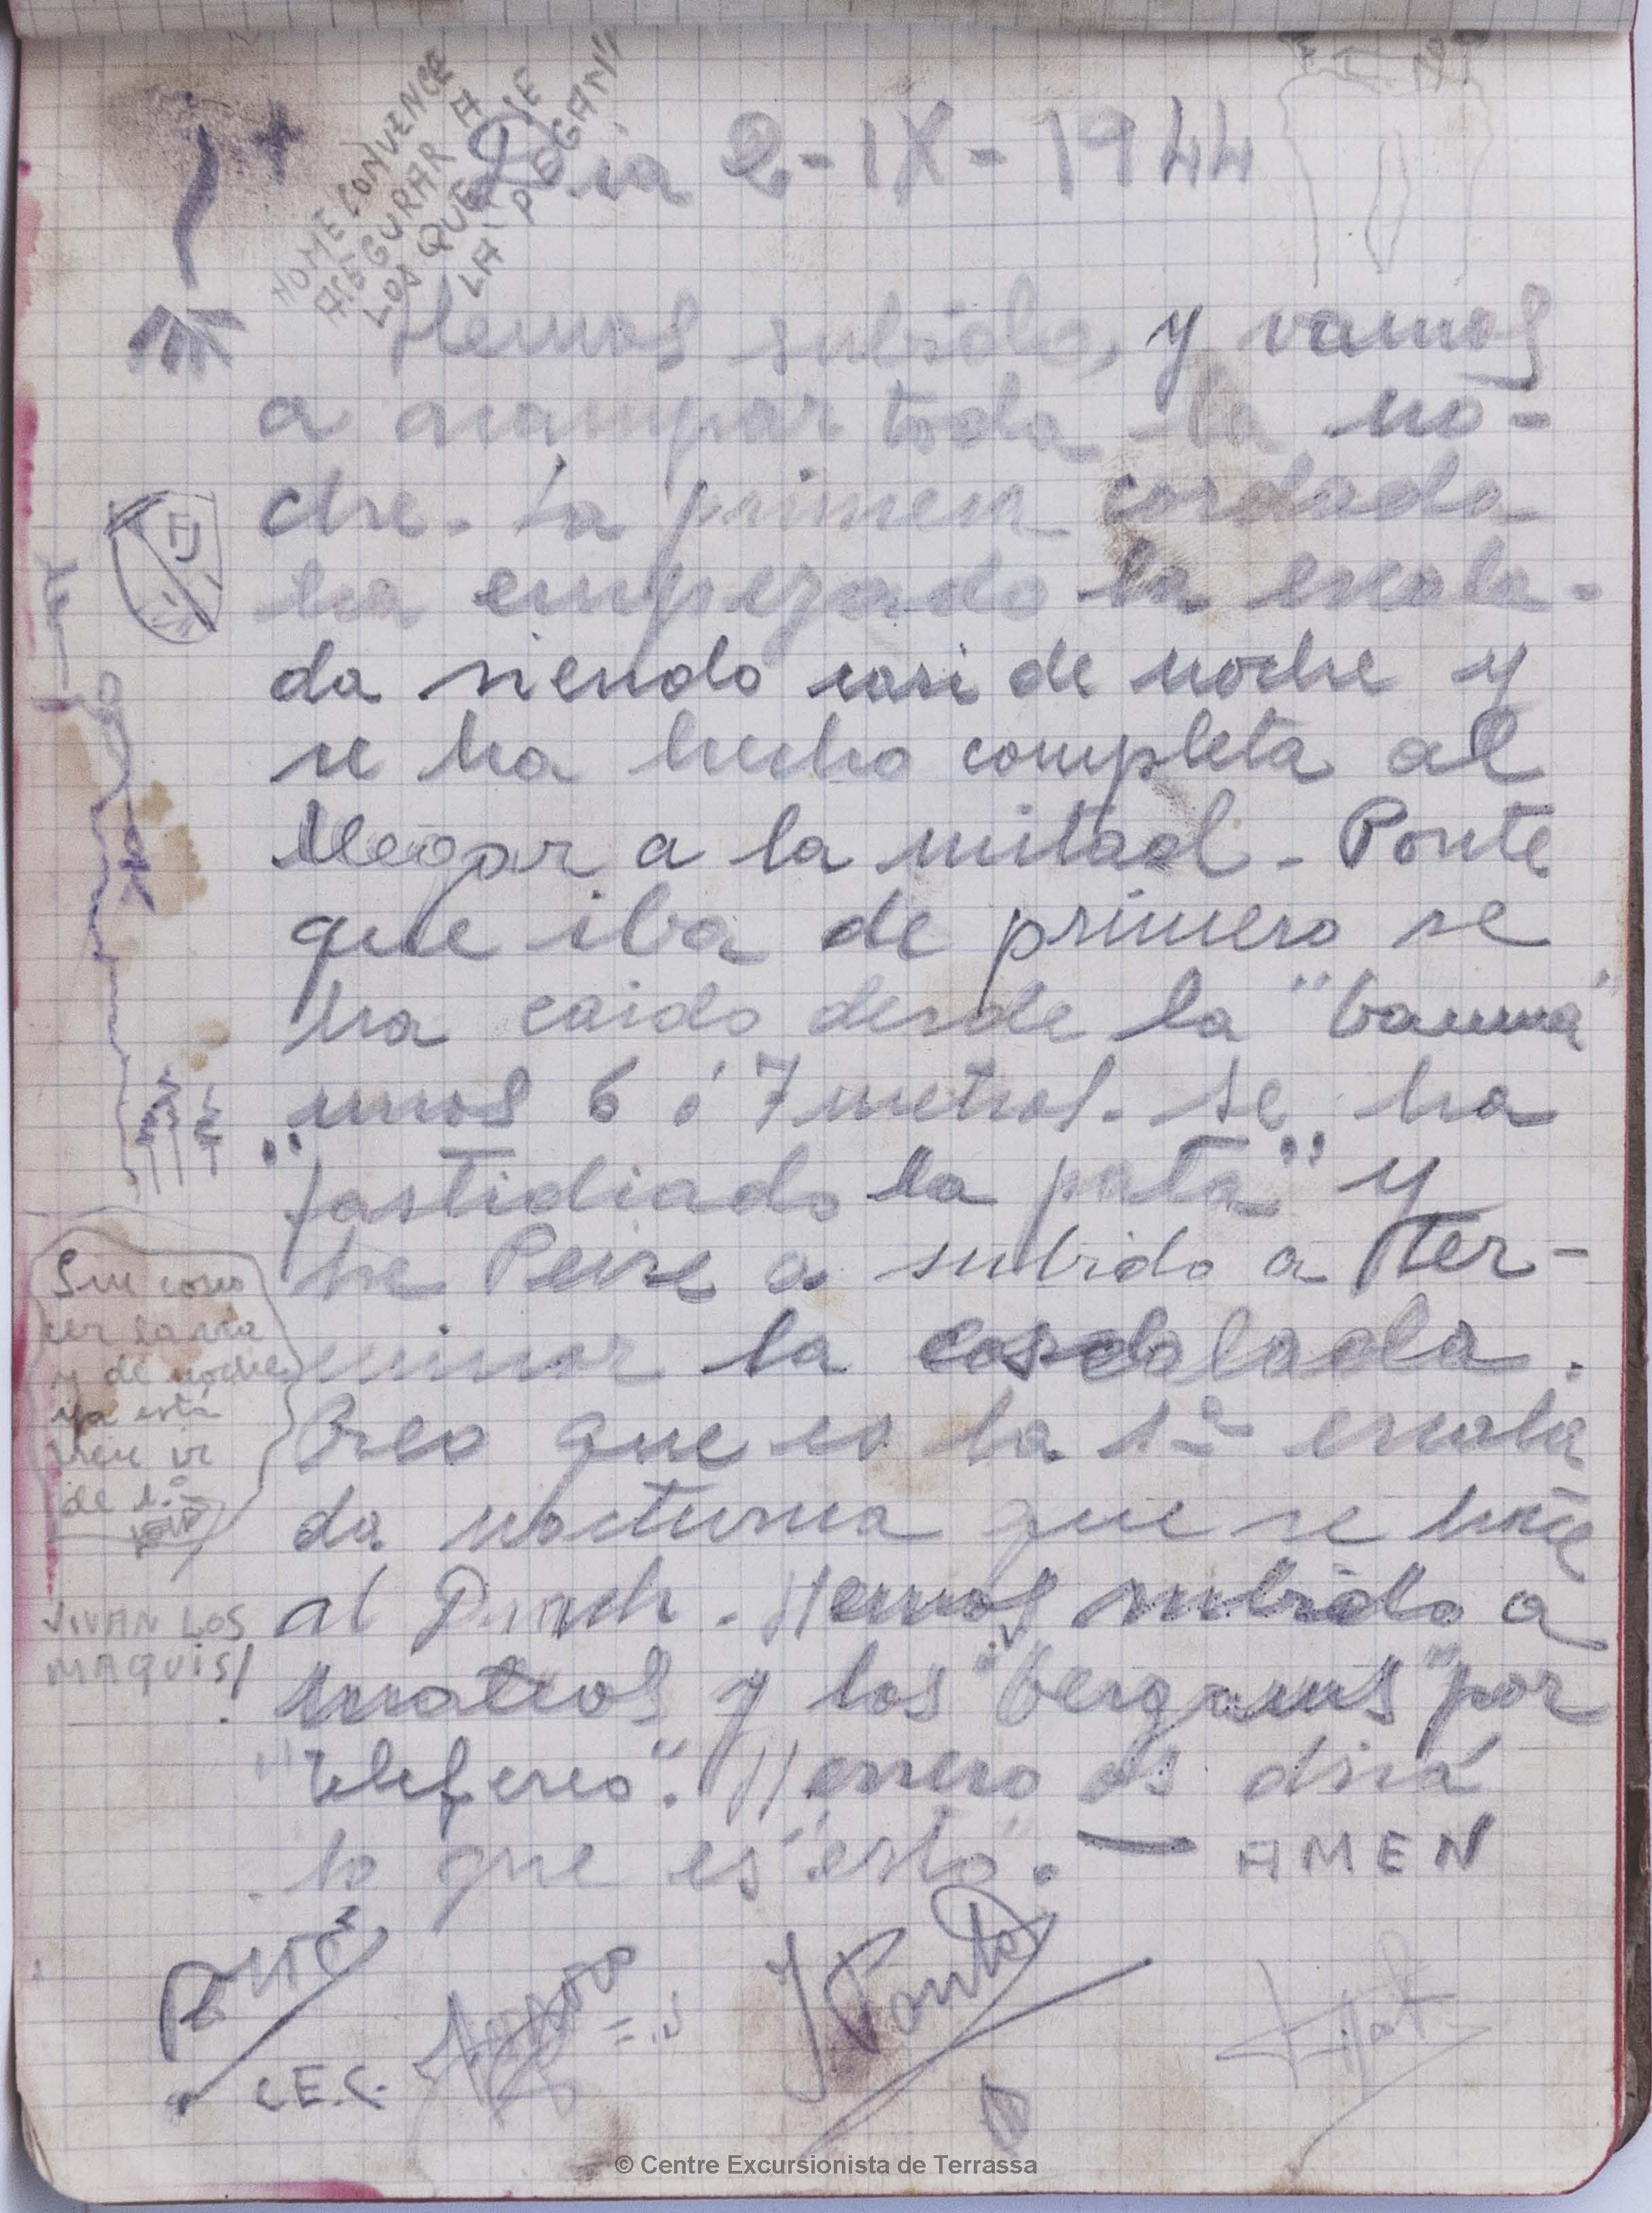 HOME CONVENCE
ASEGURAR A
LOS QUE SE
LA PEGAN!!
Dia 2-IX-1944
Hemos subido, y vamos
a acampar toda la no-
che. La primera cordada
ha empezado la escala-
da siendo casi de noche y
se ha hecho completa al
llegar a la mitad. Ponte
que iba de primero se
ha caido desde la "bauma"
unos 6 ó 7 metros. Se ha
"fastidiado la pata" y
Peire a subido a ter-
minar la
Creo que es la 1ª escala
da nocturna que se hace
al Hemos subido a
y los "bergans" por
"teleferco". Herrero os dirá
lo que es "esto". — AMEN
FJ
Sin cono
cer la via
y de noche
ya está
bien ir
de 1.º
VIVAN LOS
MAQUIS!
C.E.C.
J Ponte
© Centre Excursionista de Terrassa